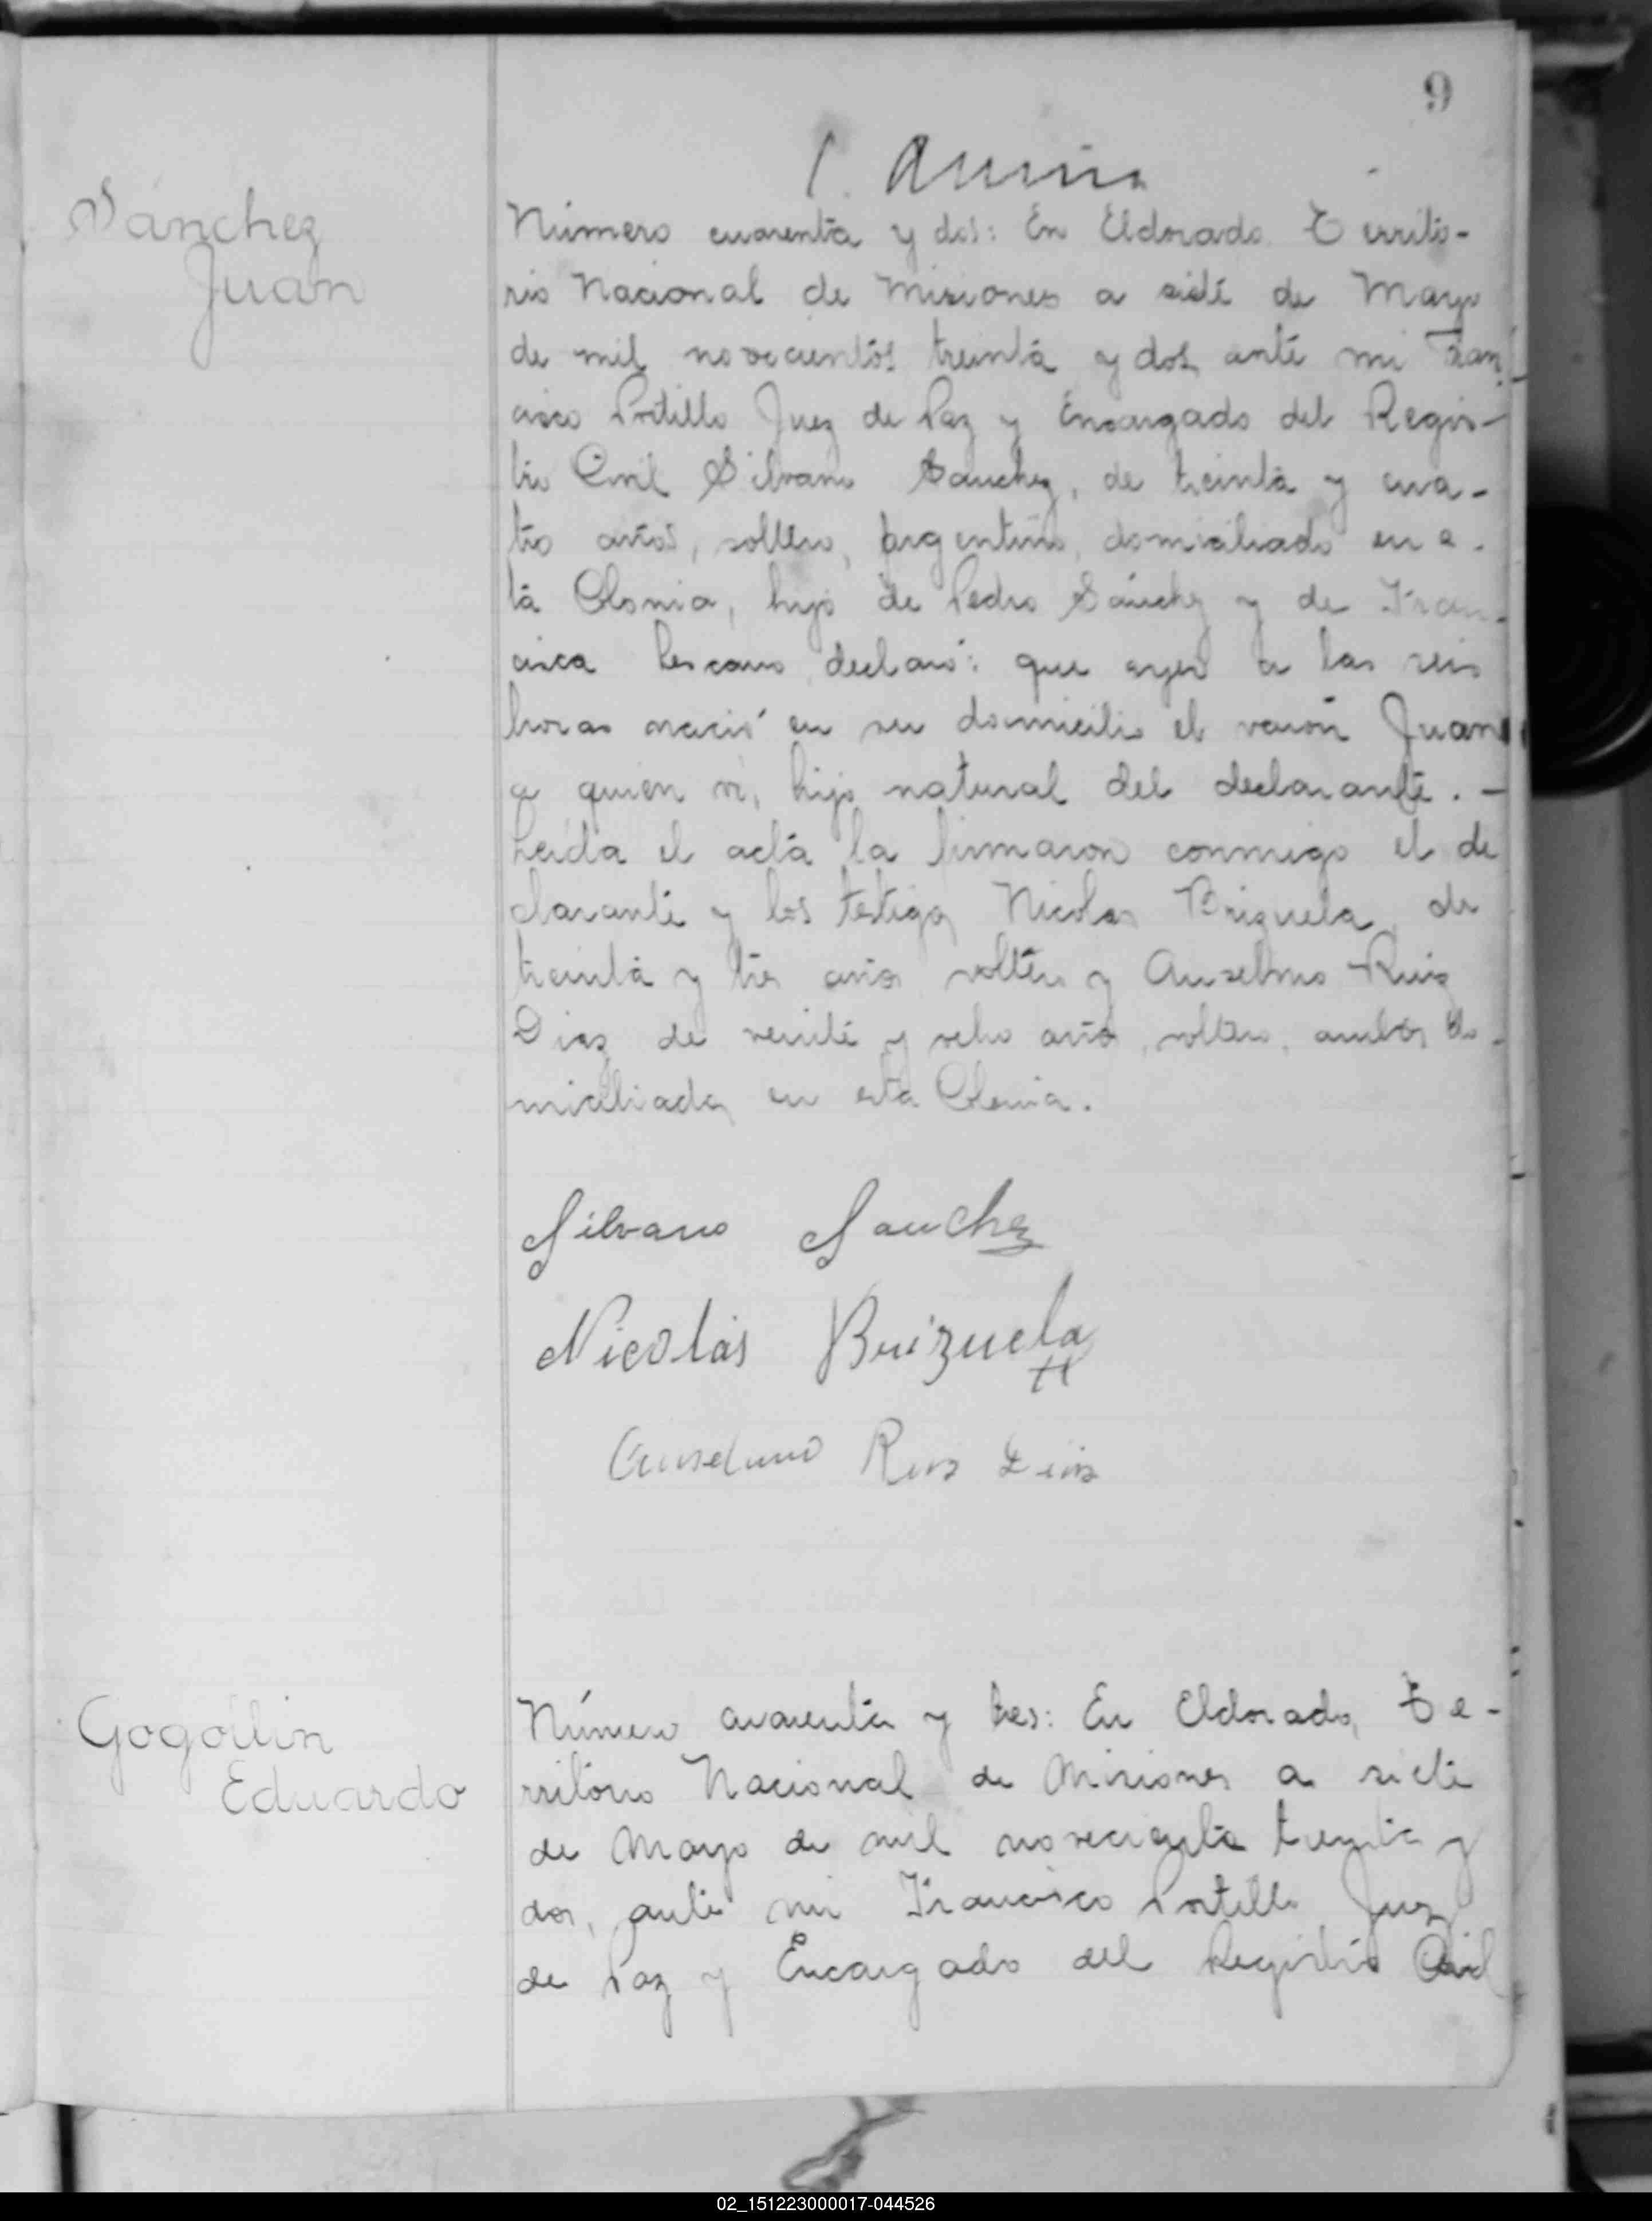 9
Sánchez
Juan
Número cuarenta y dos: En Eldorado Territo-
rio Nacional de Misiones a siete de Mayo
de mil novecientos treinta y dos ante mi Fran
cisco Portillo Juez de Paz y Encargado del Regis-
tro Civil Silvano Sanchez, de treinta y cua-
tro años, soltero, Argentino, domiciliado en e.
ta Colonia, hijo de Pedro Sánchez y de Fran-
cisca Lescano, declaró: que ayer a las seis
horas nació en su domicilio el varón Juan
a quien ví, hijo natural del declarante. -
Leída el acta la firmaron conmigo el de
clarante y los testigos Nicolas Brizuela, de
treinta y tres años soltero y Anselmo Ruiz
Diaz de veinte y ocho años, soltero, ambos do-
miciliados en esta Colonia.
Silvano Sanchez
Nicolás Brizuela
Anselmo Ruiz Diaz
Gogoilin
Eduardo
Número cuarenta y tres: En Eldorado, Te-
rritorio Nacional de Misiones a siete
de Mayo de mil novecientos treinta y
dos, ante mi Francisco Portillo Juez
de Paz y Encargado del Registro Civil
02_151223000017-044526